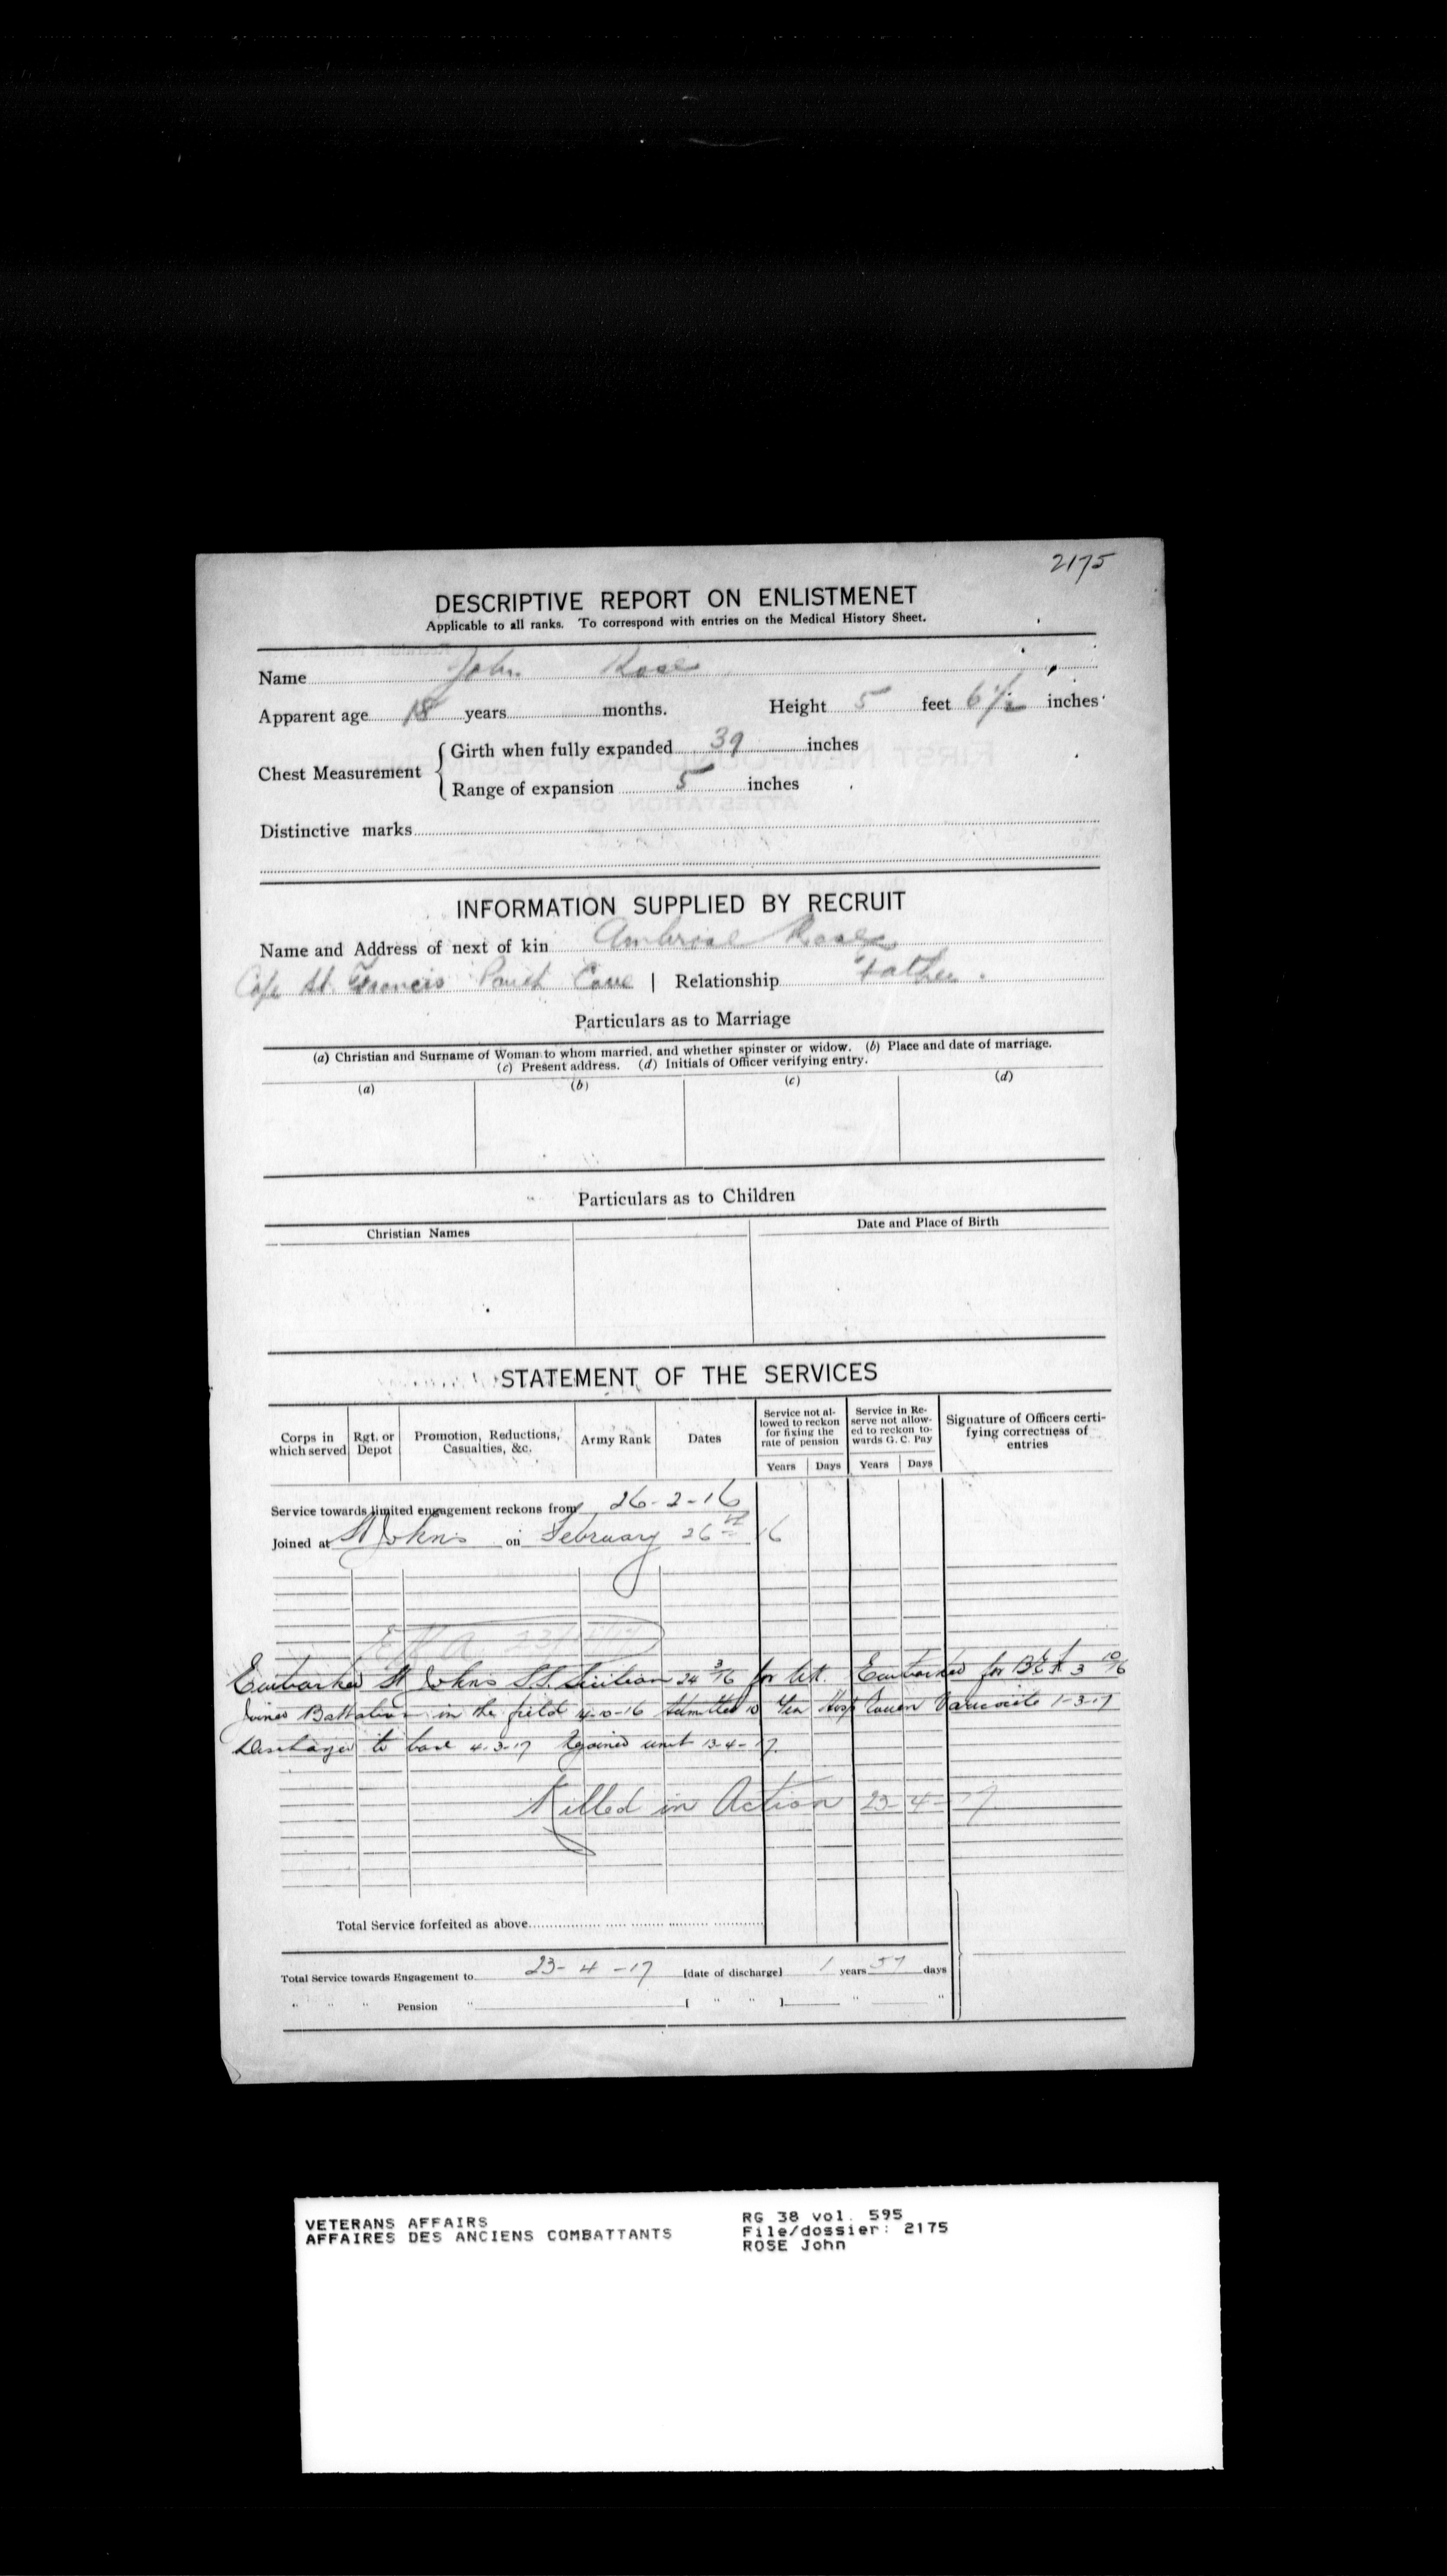 2175
DESCRIPTIVE REPORT ON ENLISTMENET
Applicable to all ranks. To correspond with entries on the Medical History Sheet.
Name John Rose
Apparent age 18 years months. Height 5 feet 6 1/2 inches
Chest Measurement { Girth when fully expanded 39 inches
Range of expansion 5 inches
Distinctive marks
INFORMATION SUPPLIED BY RECRUIT
Name and Address of next of kin Ambrose Rose
Cape St. Francis Pouch Cove | Relationship Father.
Particulars as to Marriage
(a) Christian and Surname of Woman to whom married, and whether spinster or widow. (b) Place and date of marriage.
(c) Present address. (d) Initials of Officer verifying entry.
(a) (b) (c) (d)
Particulars as to Children
Christian Names Date and Place of Birth
STATEMENT OF THE SERVICES
Corps in which served Rgt. or Depot Promotion, Reductions, Casualties, &c. Army Rank Dates Service not allowed to reckon for fixing the rate of pension Service in Reserve not allowed to reckon towards G. C. Pay Signature of Officers certifying correctness of entries
Years Days Years Days
Service towards limited engagement reckons from 26-2-16
Joined at St Johns on February 26th 16
Embarked St Johns S.S. Sicilian 24 3/16 for UK. Embarked for B.E.F. 3 10/16
Joined Battalion in the field 4-10-16 Admitted 10 Gen Hosp Rouen Varicocele 1-3-17
Discharged to base 4-3-17 Rejoined unit 13-4-17.
Killed in Action 23-4-17
Total Service forfeited as above
Total Service towards Engagement to 23-4-17 [date of discharge] 1 years 57 days
" " " Pension " [ " " ] " "
VETERANS AFFAIRS RG 38 vol. 595
AFFAIRES DES ANCIENS COMBATTANTS File/dossier: 2175
ROSE John